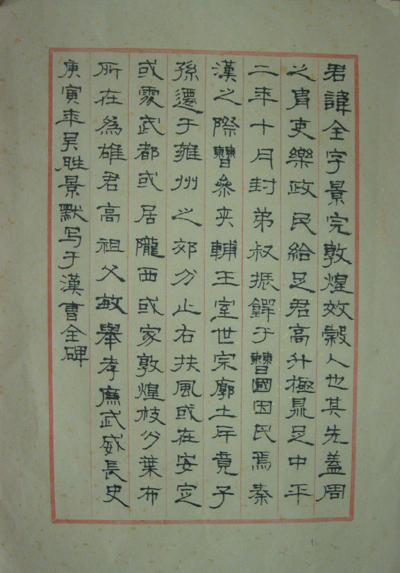 君諱全字景完敦煌效穀人也其先蓋周
之胄吏樂政民給足君高升極鼎足中平
二年十月封弟叔振鐸于曹國因氏焉秦
漢之際曹參夾輔王室世宗廓土斥竟子
孫遷于雍州之郊分止右扶風或在安定
或處武都或居隴西或家敦煌枝分葉布
所在為雄君高祖父敏舉孝廉武威長史
庚寅年吴胜景默写于漢曹全碑